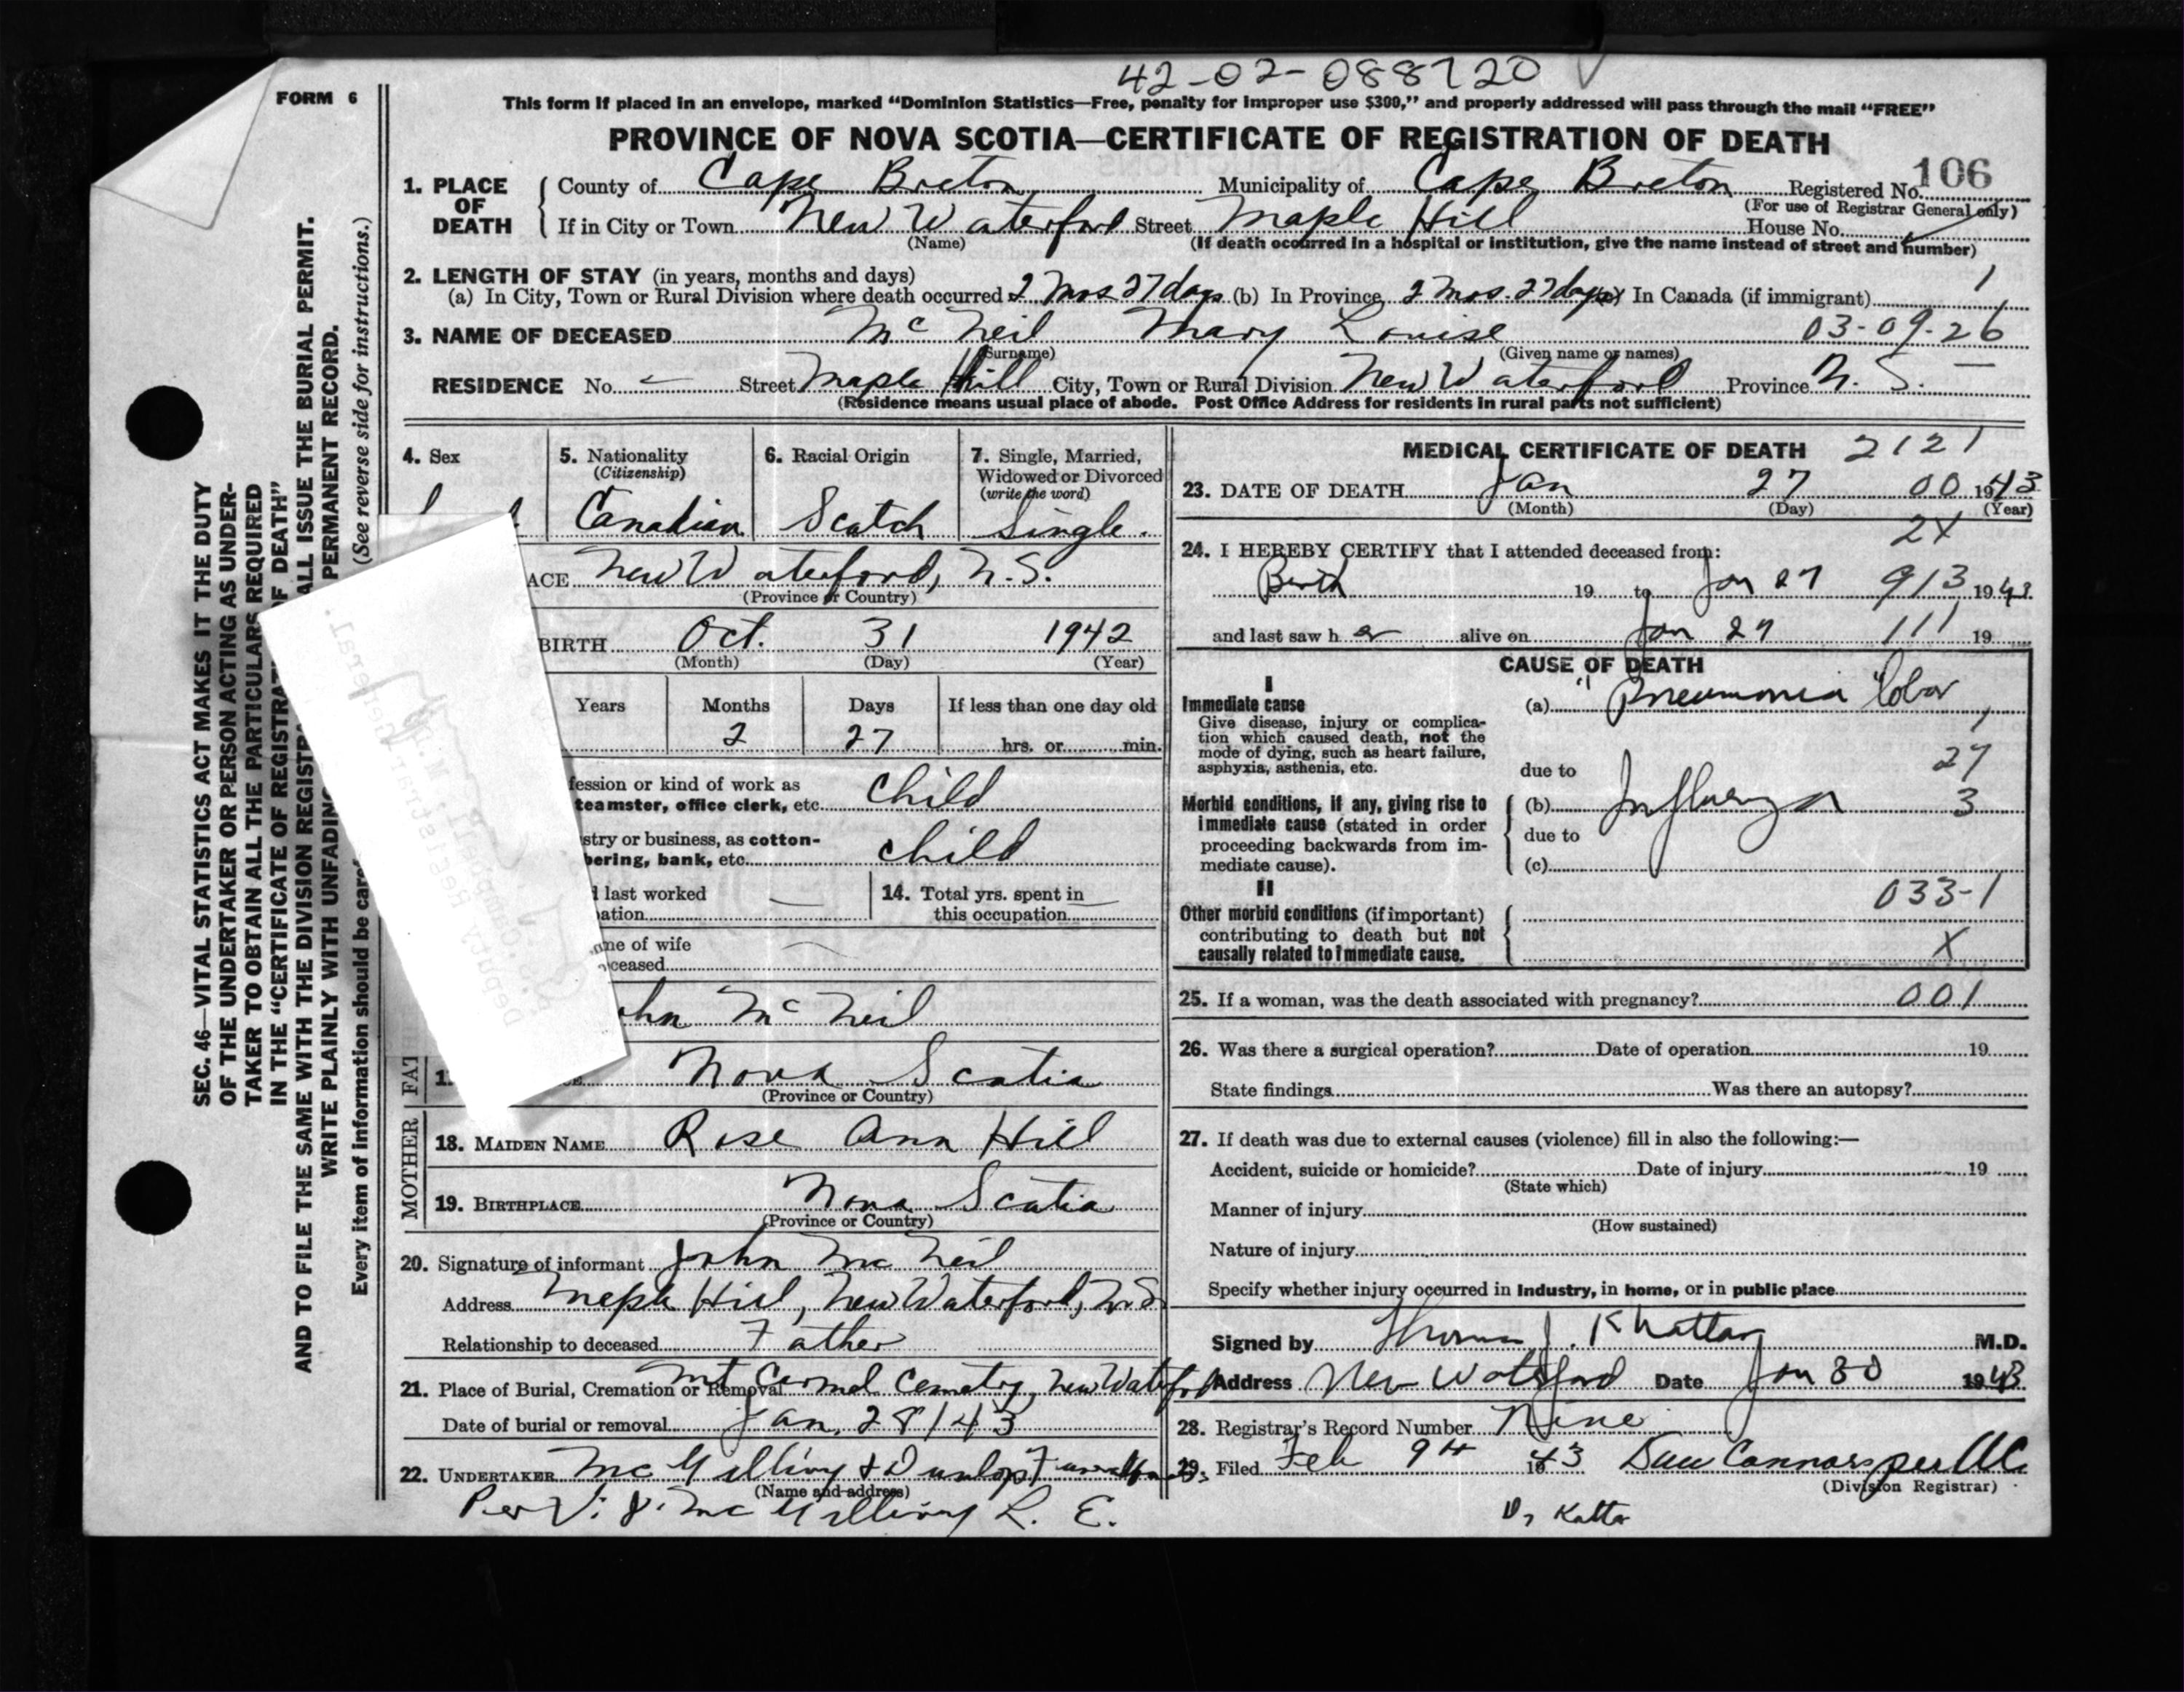 42-02-088720
FORM 6
This form if placed in an envelope, marked "Dominion Statistics—Free, penalty for improper use $300," and properly addressed will pass through the mail "FREE"
PROVINCE OF NOVA SCOTIA—CERTIFICATE OF REGISTRATION OF DEATH
1. PLACE OF DEATH County of Cape Breton Municipality of Cape Breton Registered No. 106
(For use of Registrar General only)
If in City or Town New Waterford Street Maple Hill House No.
(Name) (If death occurred in a hospital or institution, give the name instead of street and number)
2. LENGTH OF STAY (in years, months and days) 1
(a) In City, Town or Rural Division where death occurred 2 mos 27 days (b) In Province 2 mos. 27 days (c) In Canada (if immigrant)
3. NAME OF DECEASED McNeil Mary Louise 03-09-26
(Surname) (Given name or names)
RESIDENCE No. Street Maple Hill City, Town or Rural Division New Waterford Province N. S.
(Residence means usual place of abode. Post Office Address for residents in rural parts not sufficient)
4. Sex 5. Nationality (Citizenship) 6. Racial Origin 7. Single, Married, Widowed or Divorced (write the word)
Canadian Scotch Single.
ACE New Waterford, N.S.
(Province or Country)
BIRTH Oct. 31 1942
(Month) (Day) (Year)
Years Months Days If less than one day old
2 27 hrs. or min.
fession or kind of work as
teamster, office clerk, etc. child
stry or business, as cotton-
bering, bank, etc. child
last worked
ation
14. Total yrs. spent in
this occupation
me of wife
ceased
ohn McNeil
FAT
Nova Scotia
(Province or Country)
MOTHER
18. MAIDEN NAME Rose Ann Hill
19. BIRTHPLACE Nova Scotia
(Province or Country)
20. Signature of informant John McNeil
Address Maple Hill, New Waterford, N.S.
Relationship to deceased Father
21. Place of Burial, Cremation or Removal Mt Carmel Cemetry, New Waterford
Date of burial or removal Jan. 28/43
22. UNDERTAKER McGillivry & Dunlop Funeral
(Name and address)
Per V. J. McGillivry L. E.
MEDICAL CERTIFICATE OF DEATH 2121
23. DATE OF DEATH Jan 27 00 1943
(Month) (Day) (Year)
2X
24. I HEREBY CERTIFY that I attended deceased from:
Birth 19 to Jan 27 913 1943
and last saw her alive on Jan 27 111 19
CAUSE OF DEATH
I
Immediate cause
Give disease, injury or complica-
tion which caused death, not the
mode of dying, such as heart failure,
asphyxia, asthenia, etc.
(a) Pneumonia lobar
1
due to 27
Morbid conditions, if any, giving rise to
immediate cause (stated in order
proceeding backwards from im-
mediate cause).
(b) Influenza 3
due to
(c)
II
Other morbid conditions (if important)
contributing to death but not
causally related to immediate cause.
033-1
X
25. If a woman, was the death associated with pregnancy? 001
26. Was there a surgical operation? Date of operation 19
State findings Was there an autopsy?
27. If death was due to external causes (violence) fill in also the following:—
Accident, suicide or homicide? Date of injury 19
(State which)
Manner of injury
(How sustained)
Nature of injury
Specify whether injury occurred in Industry, in home, or in public place
Signed by Thomas J. Khattar M.D.
Address New Waterford Date Jan 30 1943
28. Registrar's Record Number Nine
29. Filed Feb 9th 1943 Dan Connors per
(Division Registrar)
Dr Katta
SEC. 46—VITAL STATISTICS ACT MAKES IT THE DUTY
OF THE UNDERTAKER OR PERSON ACTING AS UNDER-
TAKER TO OBTAIN ALL THE PARTICULARS REQUIRED
IN THE "CERTIFICATE OF REGISTRATI OF DEATH"
AND TO FILE THE SAME WITH THE DIVISION REGISTRA ALL ISSUE THE BURIAL PERMIT.
WRITE PLAINLY WITH UNFADING PERMANENT RECORD.
Every item of information should be caref (See reverse side for instructions.)
Deputy Registrar General.